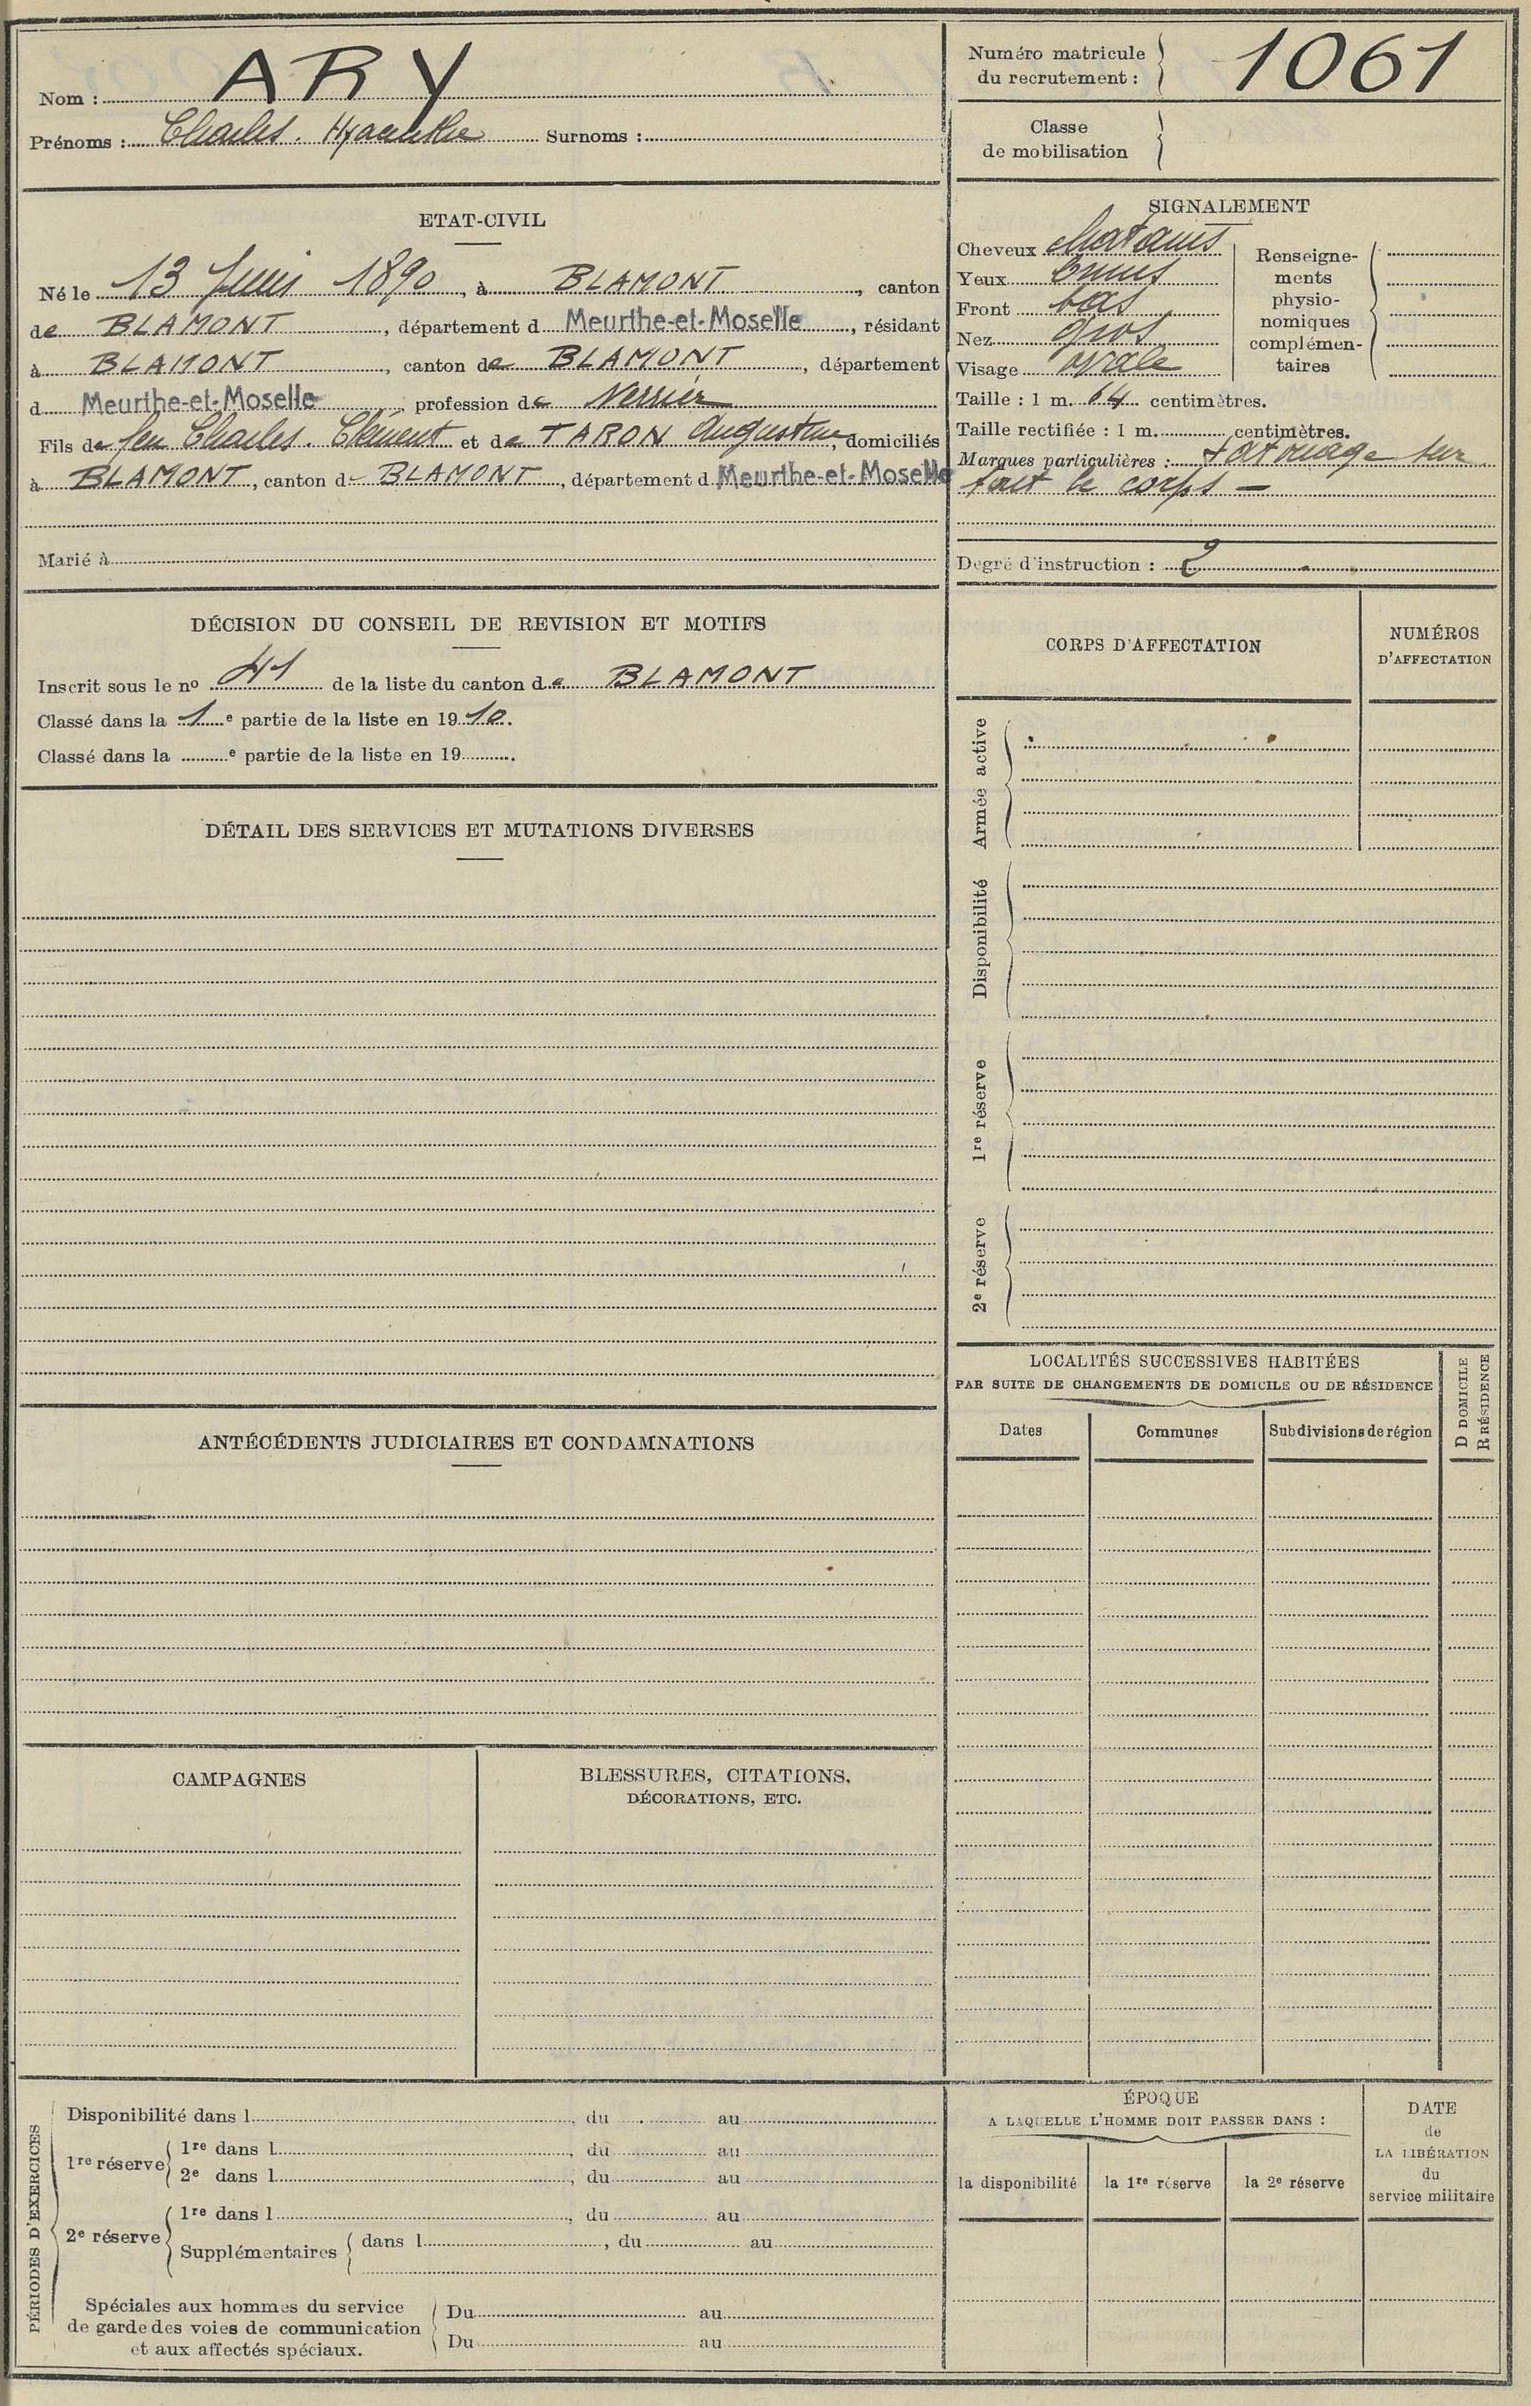 Nom : ARY
Prénoms : Charles. Hyacinthe Surnoms :
Numéro matricule
du recrutement : 1061
Classe
de mobilisation
ETAT-CIVIL
Né le 13 Juin 1890, à BLAMONT, canton
de BLAMONT, département d Meurthe-et-Moselle, résidant
à BLAMONT, canton de BLAMONT, département
d Meurthe-et-Moselle profession de Verrier
Fils de feu Charles. Clément et de TARON Augustine, domiciliés
à BLAMONT, canton de BLAMONT, département d Meurthe-et-Moselle
Marié à
SIGNALEMENT
Cheveux chatains
Yeux bruns
Front bas
Nez gros
Visage ovale
Renseigne-
ments
physio-
nomiques
complémen-
taires
Taille : 1 m. 64 centimètres.
Taille rectifiée : 1 m. centimètres.
Marques particulières : tatouage sur
tout le corps –
Degré d'instruction : 2
DÉCISION DU CONSEIL DE REVISION ET MOTIFS
Inscrit sous le nº 41 de la liste du canton de BLAMONT
Classé dans la 1e partie de la liste en 1910.
Classé dans la e partie de la liste en 19 .
CORPS D'AFFECTATION
NUMÉROS
D'AFFECTATION
Armée active
Disponibilité
1re réserve
2e réserve
DÉTAIL DES SERVICES ET MUTATIONS DIVERSES
LOCALITÉS SUCCESSIVES HABITÉES
PAR SUITE DE CHANGEMENTS DE DOMICILE OU DE RÉSIDENCE
D DOMICILE
R RÉSIDENCE
Dates
Communes
Subdivisions de région
ANTÉCÉDENTS JUDICIAIRES ET CONDAMNATIONS
CAMPAGNES
BLESSURES, CITATIONS,
DÉCORATIONS, ETC.
PÉRIODES D'EXERCICES
Disponibilité dans l , du au
1re réserve
1re dans l , du au
2e dans l , du au
2e réserve
1re dans l , du au
Supplémentaires dans l , du au
Spéciales aux hommes du service
de garde des voies de communication
et aux affectés spéciaux.
Du au
Du au
ÉPOQUE
A LAQUELLE L'HOMME DOIT PASSER DANS :
la disponibilité
la 1re réserve
la 2e réserve
DATE
de
LA LIBÉRATION
du
service militaire